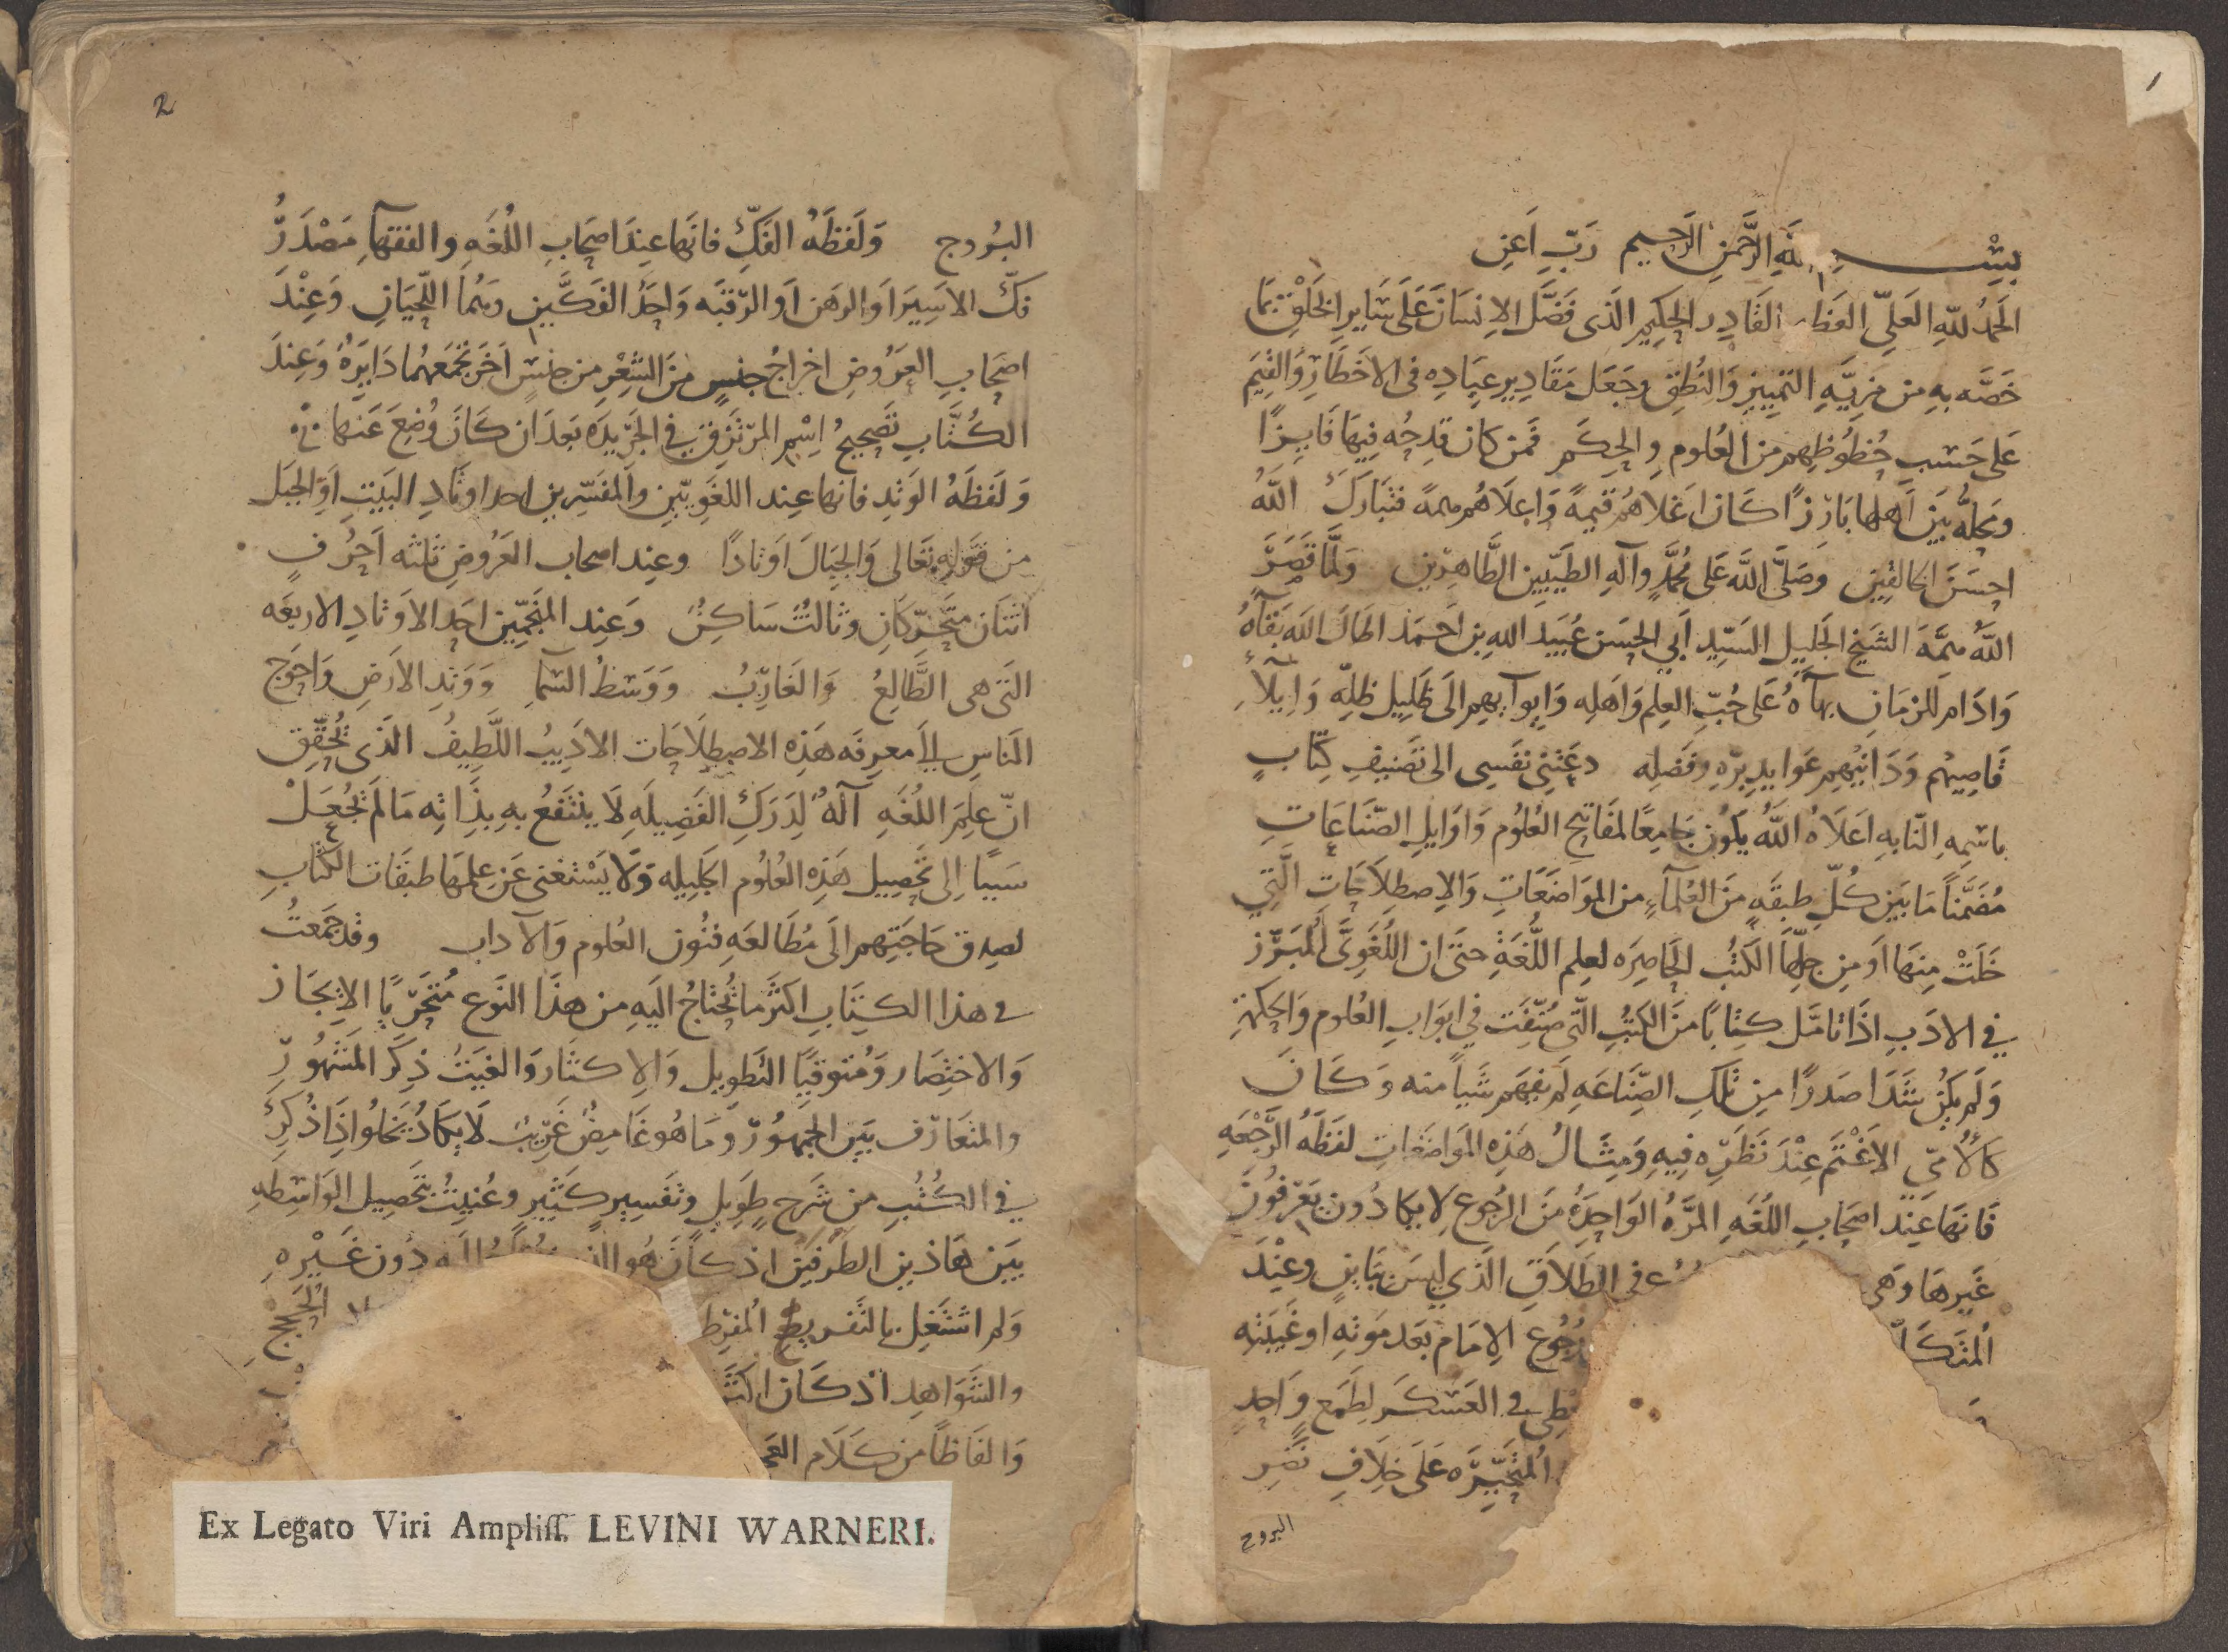 1
بسم الله الرحمن الرحيم رب اعن
الحمد لله العلي العظـ القادر الحكيم الذى فضل الانسان على ساير الخلق بما
خصه به من مزية التمييز والنطق وجعل مقادير عباده فى الاخطار والقيم
على حسب حظوظهم من العلوم والحكم فمن كان قدحه فيها فايزا
ومحله بين اهلها بارزا كان اغلاهم قيمة واعلاهم همة فتبارك الله
احسن الخالقين وصلى الله على محمد وآله الطيبين الطاهرين ولما قصر
الله همة الشيخ الجليل السيد ابي الحسن عبيد الله بن احمد اطال الله بقآه
وادام للزمان بهآه على حب العلم واهله وايوآيهم الى ظليل ظله وايلآء
قاصيهم ودانيهم عوايد بره وفضله دعتني نفسى الى تصنيف كتاب
باسمه النابه اعلاه الله يكون جامعا لمفاتيح العلوم واوايل الصناعات
مضمنا ما بين كل طبقة من العلمآء من المواضعات والاصطلاحات التي
خلت منها او من جلها الكتب الحاصره لعلم اللغة حتى ان اللغوى المبرز
في الادب اذا تامل كتابا من الكتب التى صنفت في ابواب العلوم والحكمة
ولم يكن شدا صدرا من تلك الصناعه لم يفهم شيأ منه وكان
كالأمي الاغتم عند نظره فيه ومثال هذه المواضعات لفظه الرجعه
فانها عند اصحاب اللغه المره الواحدة من الرجوع لا يكادون يعرفون
غيرها وهى ع فى الطلاق الذي ليس ببائن وعند
المتكلـ رجوع الامام بعد موته او غيبته
فى العسكر لطمع واحد
المتحيره على خلاف نضد
البروج
2
البروج ولفظه الفك فانها عند اصحاب اللغه والفقهآ مصدر
فك الاسير او الرهن او الرقبه واحد الفكين وهما اللحيان وعند
اصحاب العروض اخراج جنس من الشعر من جنس اخر تجمعهما دايرة وعند
الكتاب تصحيح اسم المرتزق في الجريده بعد ان كان وضع عنها
ولفظه الوتد فانها عند اللغويين والمفسرين احد اوتاد البيت او الجبل
من قوله تعالى والجبال اوتادا وعند اصحاب العروض ثلثه احرف
اثنان متحركان وثالث ساكن وعند المنجمين احد الاوتاد الاربعه
التى هى الطالع والغارب ووسط السما ووتد الارض واحوج
الناس الى معرفه هذه الاصطلاحات الاديب اللطيف الذى تحقق
ان علم اللغه آلة لدرك الفضيله لا ينتفع به بذاته ما لم تجعل
سببا الى تحصيل هذه العلوم الجليله ولا يستغنى عن علمها طبقات الكتاب
لصدق حاجتهم الى مطالعه فنون العلوم والآداب وقد جمعت
فى هذا الكتاب اكثر ما تحتاج اليه من هذا النوع متحريا الايجاز
والاختصار ومتوقيا التطويل والاكثار والغيت ذكر المشهور
والمتعارف بين الجمهور وما هو غامض غريب لا يكاد يخلوا اذا ذكر
في الكتب من شرح طويل وتفسير كثير وعنيت بتحصيل الواسطه
بين هاذين الطرفين اذ كان هو الذى دون غيره
ولم اشتغل بالتفريط المفرط الحجج
والشواهد اذ كان اكثـ
والفاظا من كلام
Ex Legato Viri Ampliss. LEVINI WARNERI.